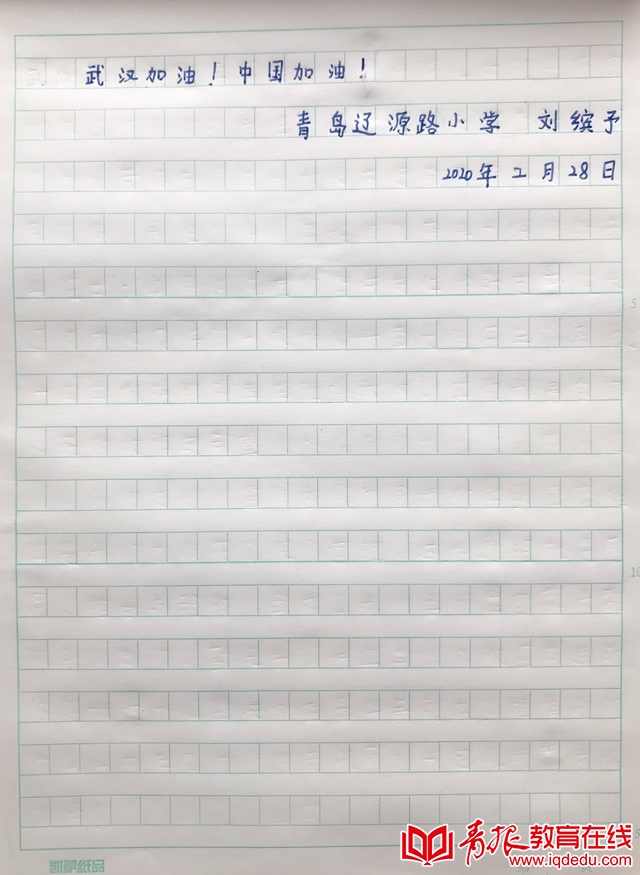 武汉加油！中国加油！
青岛辽源路小学 刘缤予
2020年二月28日
5
10
凯萨纸品
青报教育在线
www.iqdedu.com